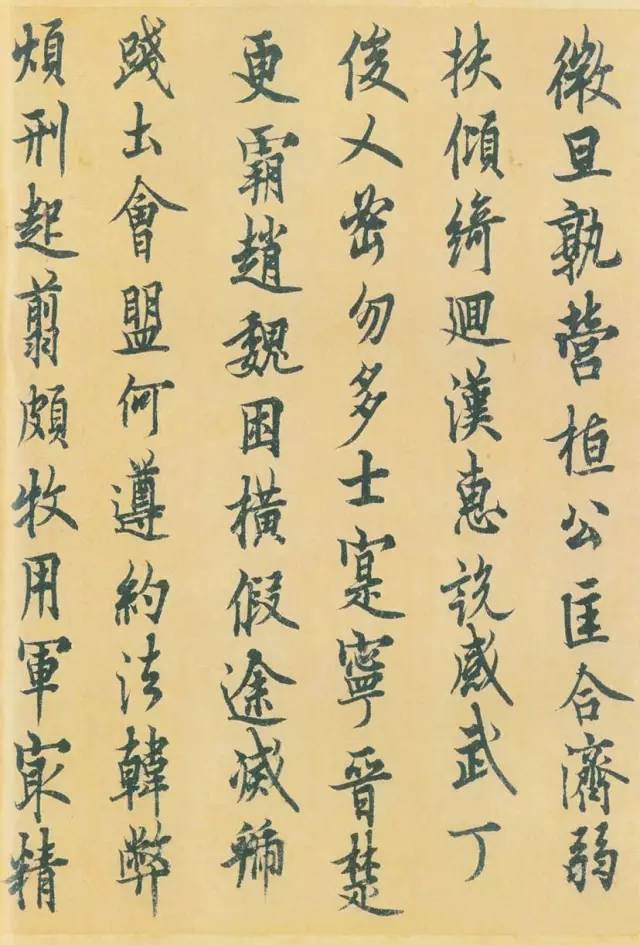 微旦孰營桓公匡合濟弱
扶傾綺迴漢惠說感武丁
俊乂密勿多士寔寧晉楚
更霸趙魏困橫假途滅虢
踐土會盟何遵約法韓弊
煩刑起翦頗牧用軍最精